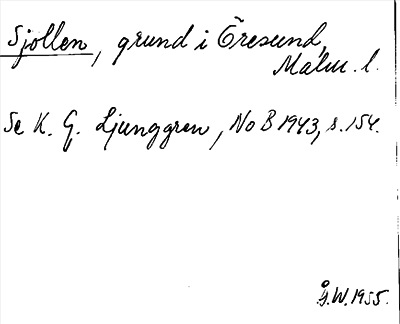 Sjollen, grund i Öresund,
Malm. l.
Se K. G. Ljunggren, NoB 1943, s. 154.
Å.W. 1955.